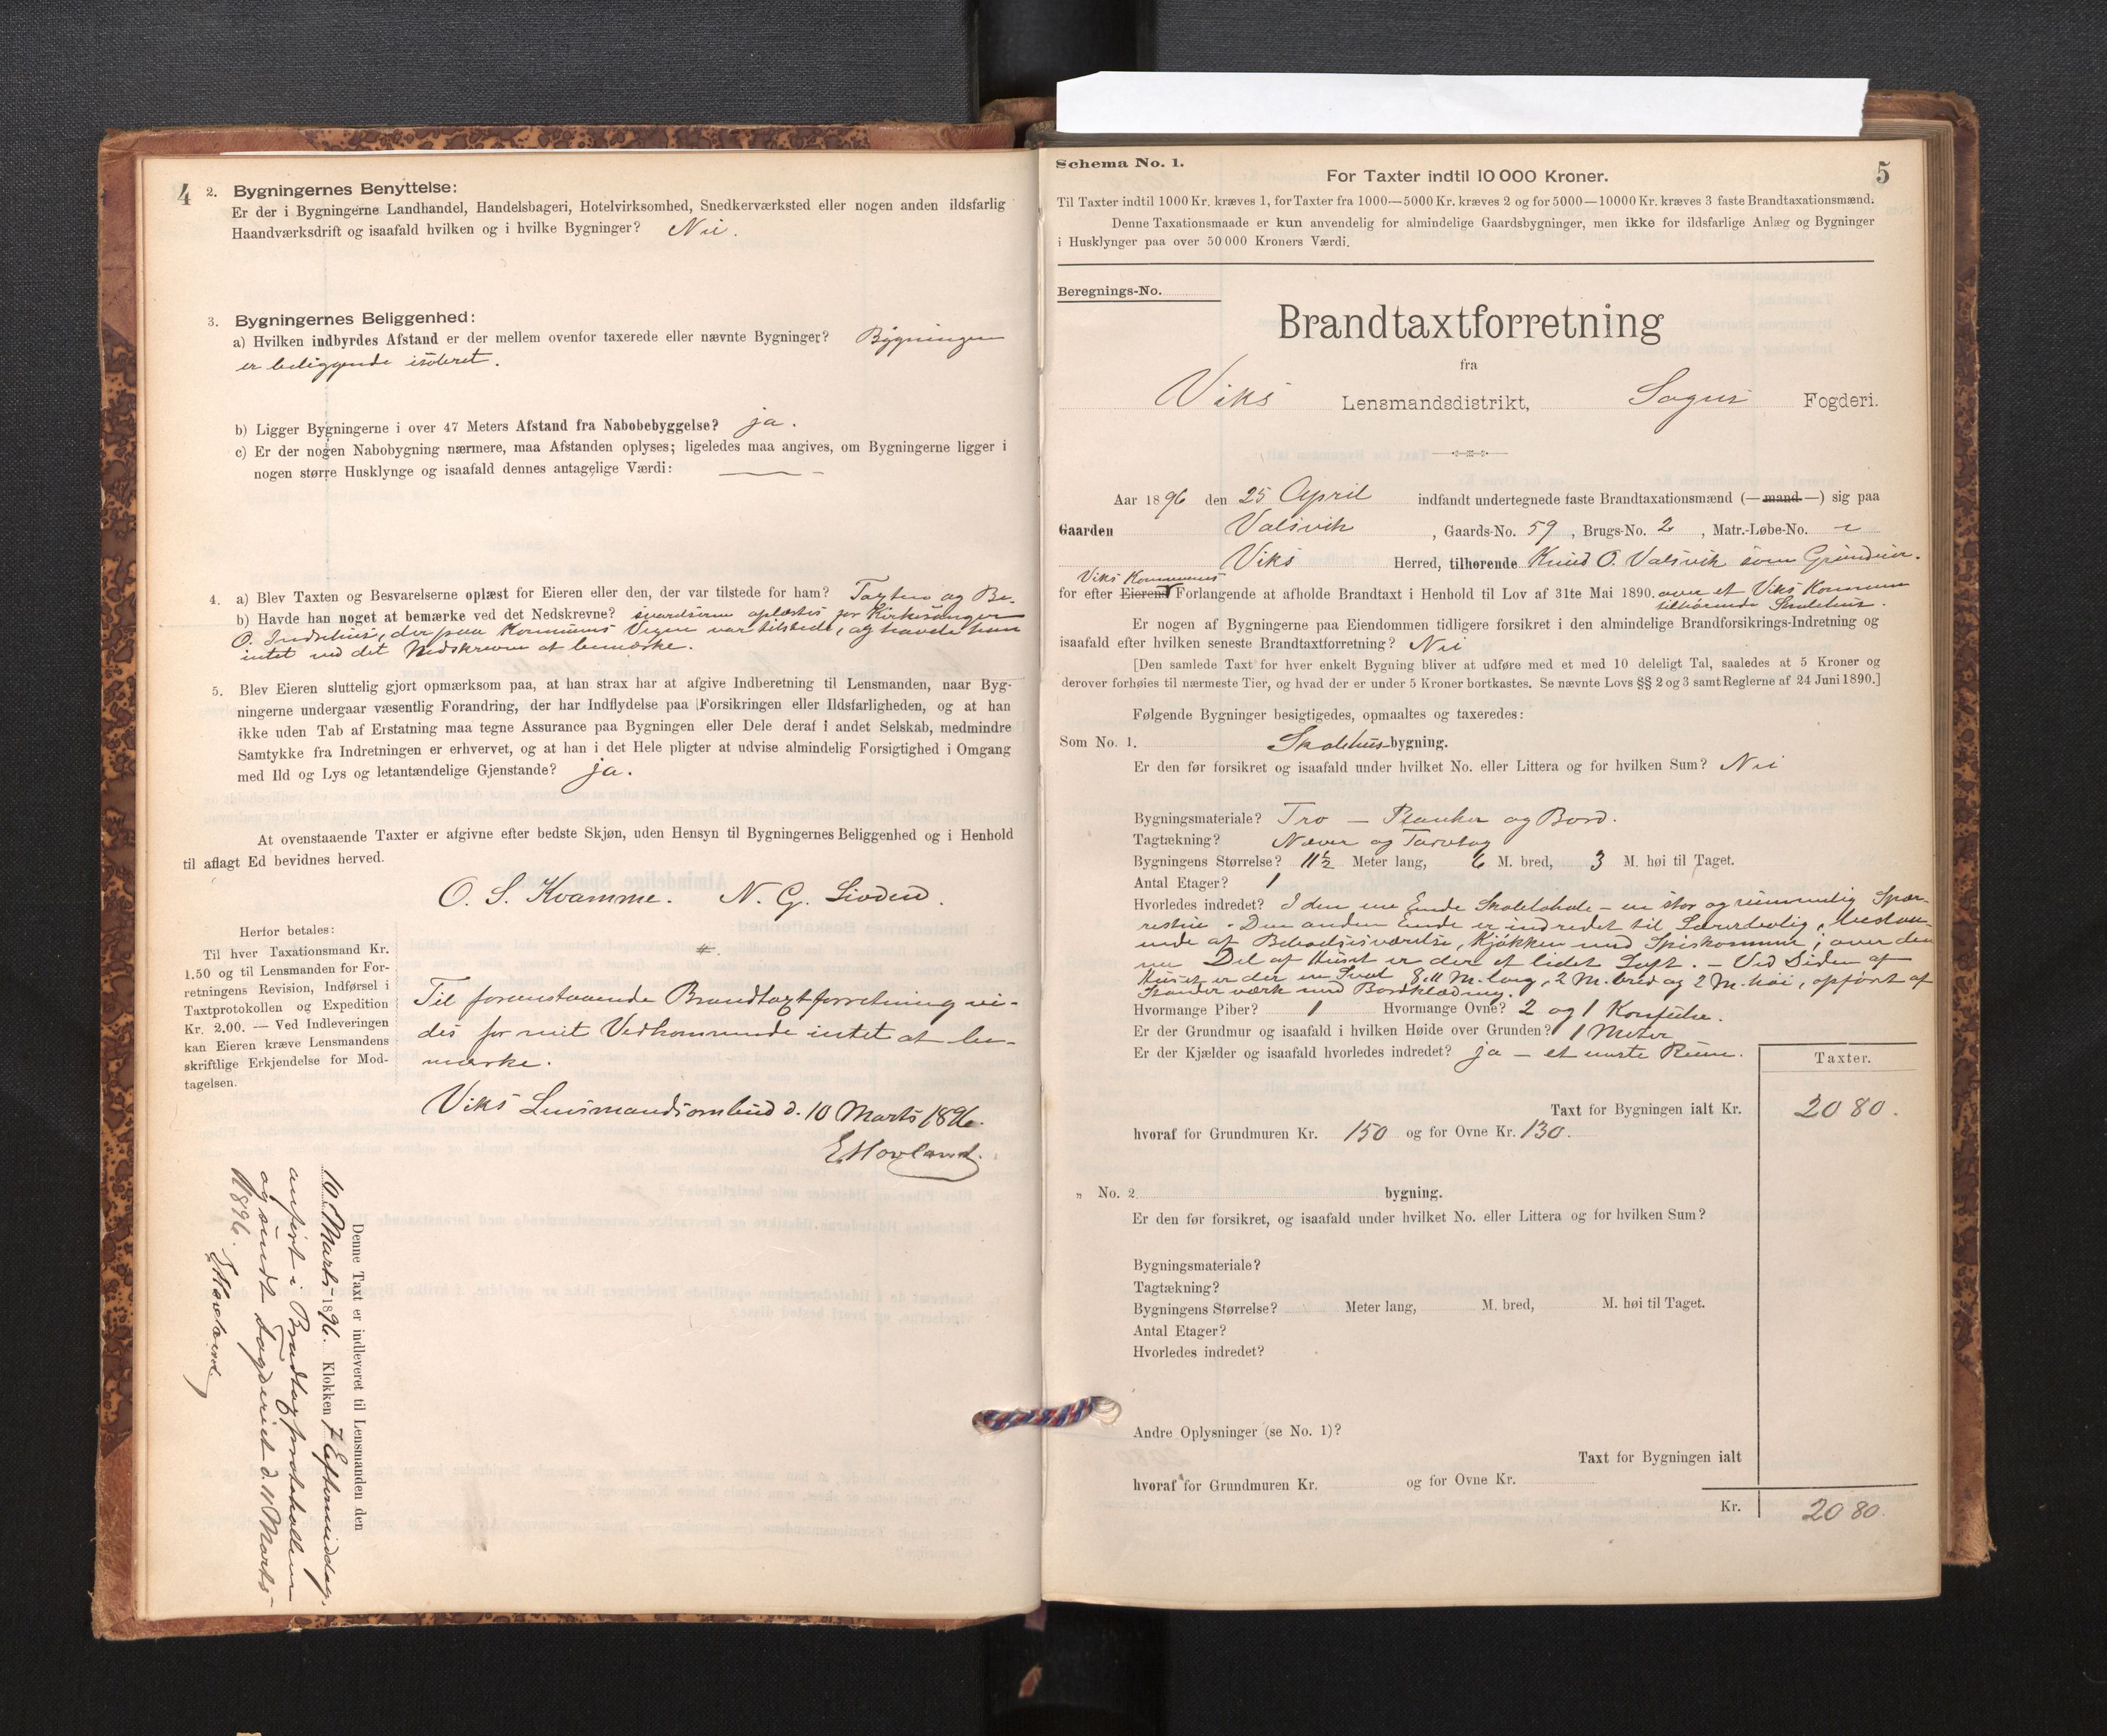 4
2. Bygningernes Benyttelse:
Er der i Bygningerne Landhandel, Handelsbageri, Hotelvirksomhed, Snedkerværksted eller nogen anden ildsfarlig
Haandværksdrift og isaafald hvilken og i hvilke Bygninger? Nei.
3. Bygningernes Beliggenhed:
a) Hvilken indbyrdes Afstand er der mellem ovenfor taxerede eller nævnte Bygninger? Bygningen
er beliggende isoleret.
b) Ligger Bygningerne i over 47 Meters Afstand fra Nabobebyggelse? ja.
c) Er der nogen Nabobygning nærmere, maa Afstanden oplyses; ligeledes maa angives, om Bygningerne ligger i
nogen større Husklynge og isaafald dennes antagelige Værdi: —
4. a) Blev Taxten og Besvarelserne oplæst for Eieren eller den, der var tilstede for ham? Taxten og Be-
b) Havde han noget at bemærke ved det Nedskrevne? svarelserne oplæstes for Kirkesanger
O. Indrehus, der paa Kommunens Vegne var tilstede, og havde han
intet ved det Nedskrevne at bemærke.
5. Blev Eieren sluttelig gjort opmærksom paa, at han strax har at afgive Indberetning til Lensmanden, naar Byg-
ningerne undergaar væsentlig Forandring, der har Indflydelse paa Forsikringen eller Ildsfarligheden, og at han
ikke uden Tab af Erstatning maa tegne Assurance paa Bygningen eller Dele deraf i andet Selskab, medmindre
Samtykke fra Indretningen er erhvervet, og at han i det Hele pligter at udvise almindelig Forsigtighed i Omgang
med Ild og Lys og letantændelige Gjenstande? ja.
At ovenstaaende Taxter er afgivne efter bedste Skjøn, uden Hensyn til Bygningernes Beliggenhed og i Henhold
til aflagt Ed bevidnes herved.
O. S. Kvamme. N. G.
Herfor betales:
Til hver Taxationsmand Kr.
1.50 og til Lensmanden for For-
retningens Revision, Indførsel i
Taxtprotokollen og Expedition
Kr. 2.00. — Ved Indleveringen
kan Eieren kræve Lensmandens
skriftlige Erkjendelse for Mod-
tagelsen.
#.
Til foranstaaende Brandtaxtforretning vi-
des for mit Vedkommende intet at be-
mærke.
Viks Lensmandsombud d. 10 Marts 1896.
E Hovland.
Denne Taxt er indleveret til Lensmanden den
10 Marts 1896. Klokken 7 Eftermiddag,
anført i Brandtaxtprotokollen
og sendt Fogderiet d. 11 Marts
1896. E Hovland
Schema No. 1.
5
For Taxter indtil 10 000 Kroner.
Til Taxter indtil 1000 Kr. kræves 1, for Taxter fra 1000—5000 Kr. kræves 2 og for 5000—10000 Kr. kræves 3 faste Brandtaxationsmænd.
Denne Taxationsmaade er kun anvendelig for almindelige Gaardsbygninger, men ikke for ildsfarlige Anlæg og Bygninger
i Husklynger paa over 50 000 Kroners Værdi.
Beregnings-No.
Brandtaxtforretning
fra
Viks Lensmandsdistrikt, Sogns Fogderi.
Aar 1896 den 25 April indfandt undertegnede faste Brandtaxationsmænd (—mand—) sig paa
Gaarden Valsvik, Gaards-No. 59, Brugs-No. 2, Matr.-Løbe-No. –
Viks Herred, tilhørende Knud O. Valsvik som Grundeier.
Viks Kommunes
for efter Eierens Forlangende at afholde Brandtaxt i Henhold til Lov af 31te Mai 1890. over et Viks Kommune
tilhørende Skolehus.
Er nogen af Bygningerne paa Eiendommen tidligere forsikret i den almindelige Brandforsikrings-Indretning og
isaafald efter hvilken seneste Brandtaxtforretning? Nei
[Den samlede Taxt for hver enkelt Bygning bliver at udføre med et med 10 deleligt Tal, saaledes at 5 Kroner og
derover forhøies til nærmeste Tier, og hvad der er under 5 Kroner bortkastes. Se nævnte Lovs §§ 2 og 3 samt Reglerne af 24 Juni 1890.]
Følgende Bygninger besigtigedes, opmaaltes og taxeredes:
Som No. 1. Skolehus-bygning.
Er den før forsikret og isaafald under hvilket No. eller Littera og for hvilken Sum? Nei
Bygningsmateriale? Træ — Planker og Bord.
Tagtækning? Næver og Torvtag
Bygningens Størrelse? 11½ Meter lang, 6 M. bred, 3 M. høi til Taget.
Antal Etager? 1
Hvorledes indredet? I den ene Ende Skolelokale – en stor og rummelig Spar-
restue. Den anden Ende er indredet til Lærerbolig, bestaa-
ende af Beboelsesværelse, Kjøkken med Spiskammer; over den-
ne Del af Huset er der et lidet Loft. – Ved Siden af
Huset er der en Sval 8,11 M. lang, 2 M. bred og 2 M. høi, opført af
Standerværk med Bordklædning.
Hvormange Piber? 1 Hvormange Ovne? 2 og 1 Komfur.
Er der Grundmur og isaafald i hvilken Høide over Grunden? 1 Meter
Er der Kjælder og isaafald hvorledes indredet? ja – et murte Rum.
Taxter.
Taxt for Bygningen ialt Kr. 2080.
hvoraf for Grundmuren Kr. 150 og for Ovne Kr. 130.
„ No. 2 bygning.
Er den før forsikret, og isaafald under hvilket No. eller Littera og for hvilken Sum?
Bygningsmateriale?
Tagtækning?
Bygningens Størrelse? Meter lang, M. bred, M. høi til Taget.
Antal Etager?
Hvorledes indredet?
Andre Oplysninger (se No. 1)?
Taxt for Bygningen ialt
hvoraf for Grundmuren Kr. og for Ovne Kr.
Kr. 2080.